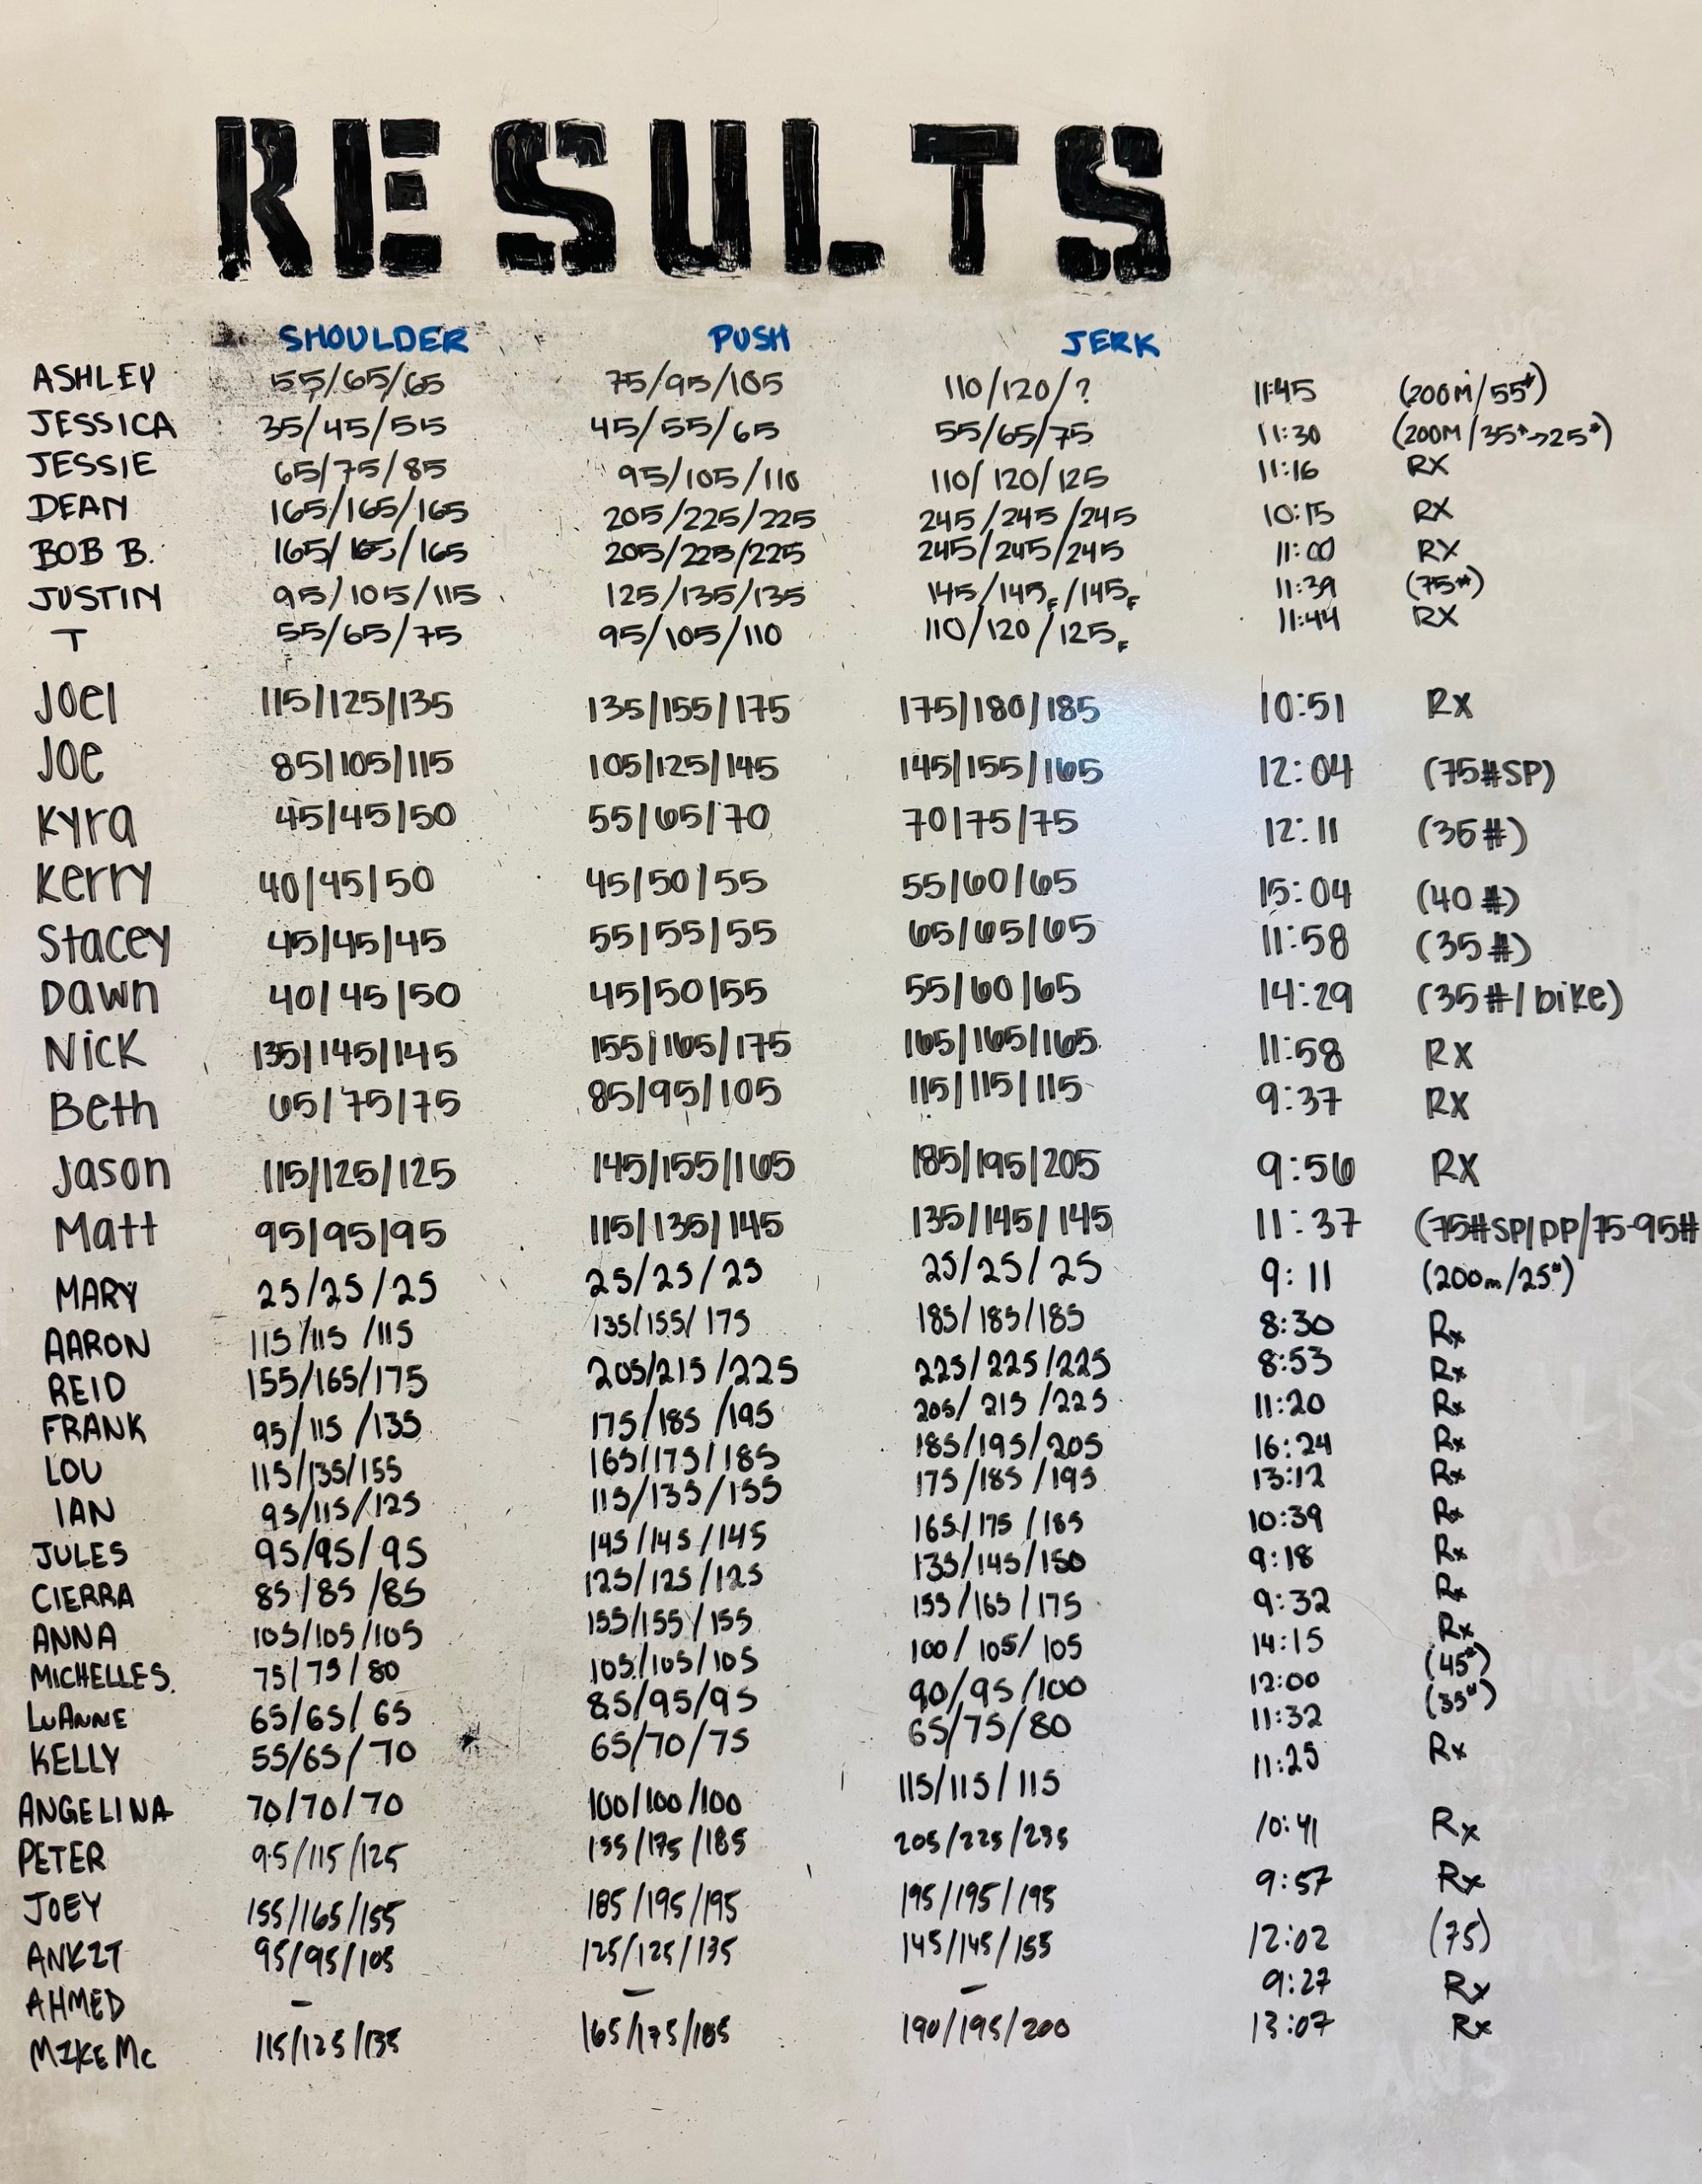 RESULTS
SHOULDER PUSH JERK
ASHLEY 55/65/65 75/95/105 110/120/? 11:45 (200m/55#)
JESSICA 35/45/55 45/55/65 55/65/75 11:30 (200M/35#->25#)
JESSIE 65/75/85 95/105/110 110/120/125 11:16 RX
DEAN 165/165/165 205/225/225 245/245/245 10:15 RX
BOB B. 165/165/165 205/225/225 245/245/245 11:00 RX
JUSTIN 95/105/115 125/135/135 145/145F/145F 11:39 (75#)
T 55/65/75 95/105/110 110/120/125F 11:44 RX
Joel 115/125/135 135/155/175 175/180/185 10:51 Rx
Joe 85/105/115 105/125/145 145/155/165 12:04 (75#SP)
Kyra 45/45/50 55/65/70 70/75/75 12:11 (35#)
Kerry 40/45/50 45/50/55 55/60/65 15:04 (40#)
Stacey 45/45/45 55/55/55 65/65/65 11:58 (35#)
Dawn 40/45/50 45/50/55 55/60/65 14:29 (35#/bike)
Nick 135/145/145 155/165/175 165/165/165 11:58 Rx
Beth 65/75/75 85/95/105 115/115/115 9:37 Rx
Jason 115/125/125 145/155/165 185/195/205 9:56 Rx
Matt 95/95/95 115/135/145 135/145/145 11:37 (75#SP/PP/75-95#
MARY 25/25/25 25/25/25 25/25/25 9:11 (200m/25#)
AARON 115/115/115 135/155/175 185/185/185 8:30 Rx
REID 155/165/175 205/215/225 225/225/225 8:53 Rx
FRANK 95/115/135 175/185/195 205/215/225 11:20 Rx
LOU 115/135/155 165/175/185 185/195/205 16:24 Rx
IAN 95/115/125 115/135/155 175/185/195 13:12 Rx
JULES 95/95/95 145/145/145 165/175/185 10:39 Rx
CIERRA 85/85/85 125/125/125 135/145/150 9:18 Rx
ANNA 105/105/105 155/155/155 155/165/175 9:32 Rx
MICHELLE S. 75/75/80 105/105/105 100/105/105 14:15 Rx
LuANNE 65/65/65 85/95/95 90/95/100 12:00 (45#)
KELLY 55/65/70 65/70/75 65/75/80 11:32 (35#)
ANGELINA 70/70/70 100/100/100 115/115/115 11:25 Rx
PETER 95/115/125 155/175/185 205/225/235 10:41 Rx
JOEY 155/165/155 185/195/195 195/195/195 9:57 Rx
ANKIT 95/95/105 125/125/135 145/145/155 12:02 (75)
AHMED - - - 9:27 Rx
MIKE Mc 115/125/135 165/175/185 190/195/200 13:07 Rx